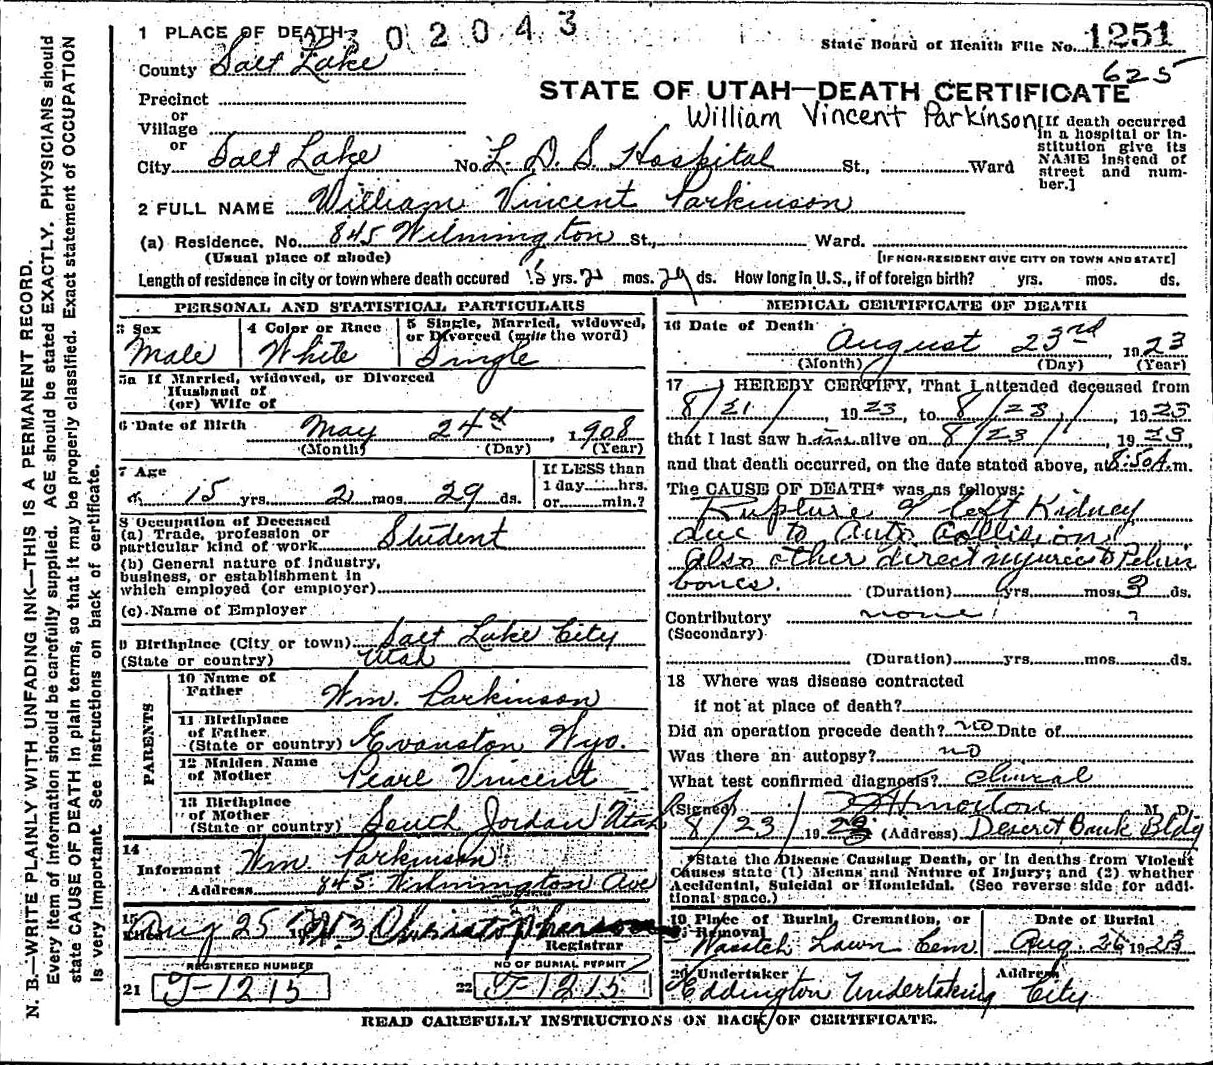 N. B.—WRITE PLAINLY WITH UNFADING INK—THIS IS A PERMANENT RECORD.
Every item of information should be carefully supplied. AGE should be stated EXACTLY. PHYSICIANS should
state CAUSE OF DEATH in plain terms, so that it may be properly classified. Exact statement of OCCUPATION
is very important. See instructions on back of certificate.
1 PLACE OF DEATH 02043
State Board of Health File No. 1251
County Salt Lake
625
STATE OF UTAH—DEATH CERTIFICATE
Precinct
or
Village
or
William Vincent Parkinson
City Salt Lake No. L. D. S. Hospital St., Ward
[If death occurred
in a hospital or in-
stitution give its
NAME instead of
street and num-
ber.]
2 FULL NAME William Vincent Parkinson
(a) Residence, No. 845 Wilmington St., Ward.
(Usual place of abode) [IF NON-RESIDENT GIVE CITY OR TOWN AND STATE]
Length of residence in city or town where death occured 15 yrs. 2 mos. 29 ds. How long in U.S., if of foreign birth? yrs. mos. ds.
PERSONAL AND STATISTICAL PARTICULARS
3 Sex
Male
4 Color or Race
White
5 Single, Married, widowed,
or Divorced (write the word)
Single
5a If Married, widowed, or Divorced
Husband of
(or) Wife of
6 Date of Birth May 24th, 1908
(Month) (Day) (Year)
7 Age
15 yrs. 2 mos. 29 ds.
If LESS than
1 day hrs.
or min.?
8 Occupation of Deceased
(a) Trade, profession or
particular kind of work Student
(b) General nature of industry,
business, or establishment in
which employed (or employer)
(c) Name of Employer
9 Birthplace (City or town) Salt Lake City
(State or country) Utah
PARENTS
10 Name of
Father Wm. Parkinson
11 Birthplace
of Father
(State or country) Evanston Wyo.
12 Maiden Name
of Mother Pearl Vincent
13 Birthplace
of Mother
(State or country) South Jordan Utah
14
Informant Wm Parkinson
Address 845 Wilmington Ave
15
Filed Aug 25 1923 Christopherson
Registrar
REGISTERED NUMBER
21 J-1215
NO OF BURIAL PERMIT
22 J-1215
MEDICAL CERTIFICATE OF DEATH
16 Date of Death
August 23rd, 1923
(Month) (Day) (Year)
17 I HEREBY CERTIFY, That I attended deceased from
8/21/, 1923, to 8/23/, 1923
that I last saw him alive on 8/23/, 1923,
and that death occurred, on the date stated above, at 8:50 A.m.
The CAUSE OF DEATH* was as follows:
Rupture of left Kidney
due to Auto Collision
also other direct injuries to Pelvic
bones.
(Duration) yrs. mos. ds.
Contributory none
(Secondary)
(Duration) yrs. mos. ds.
18 Where was disease contracted
if not at place of death?
Did an operation precede death? no Date of
Was there an autopsy? no
What test confirmed diagnosis? clinical
(Signed) M. D.
8/23/1923 (Address) Deseret Bank Bldg
*State the Disease Causing Death, or in deaths from Violent
Causes state (1) Means and Nature of Injury; and (2) whether
Accidental, Suicidal or Homicidal. (See reverse side for addi-
tional space.)
19 Place of Burial, Cremation, or
Removal
Wasatch Lawn Cem.
Date of Burial
Aug. 26 1923
20 Undertaker
Eddington Undertaking
Address
City
READ CAREFULLY INSTRUCTIONS ON BACK OF CERTIFICATE.